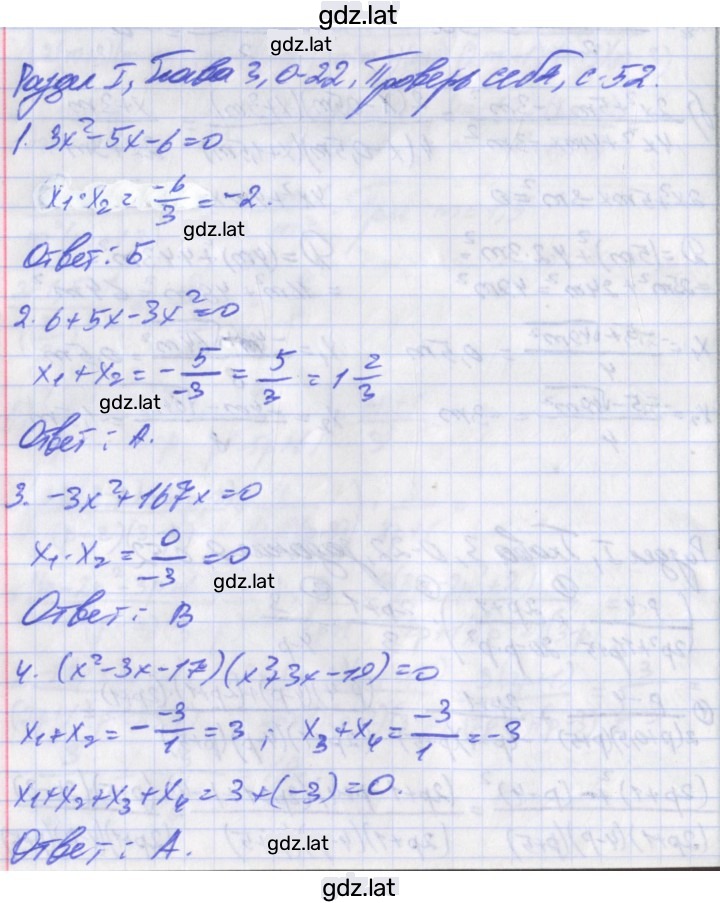 gdz.lat
gdz.lat
Раздел I, Глава 3, О-22, Проверь себя, с.52.
1. 3x²-5x-6=0
x₁·x₂ = -6/3 = -2.
gdz.lat
Ответ: Б
2. 6+5x-3x²=0
x₁+x₂ = -5/-3 = 5/3 = 1 2/3
gdz.lat
Ответ: А.
3. -3x²+167x=0
x₁·x₂ = 0/-3 = 0
gdz.lat
Ответ: В
4. (x²-3x-17)(x²+3x-19)=0
x₁+x₂ = - -3/1 = 3; x₃+x₄ = -3/1 = -3
x₁+x₂+x₃+x₄ = 3+(-3)=0.
Ответ: А.
gdz.lat
gdz.lat